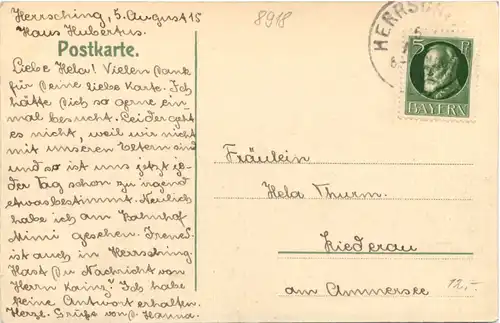 Herrsching, 5. August 15
Haus Hubertus.
Postkarte.
Liebe Hela! Vielen Dank
für Deine liebe Karte. Ich
hätte Dich so gerne ein-
mal besucht. Leider geht
es nicht, weil wir nicht
mit unseren Eltern sind
und so ist uns jetzt je-
der Tag schon zu irgend
etwas bestimmt. Neulich
habe ich am Bahnhof
Mimi gesehen. Irene S.
ist auch in Herrsching.
Hast Du Nachricht von
Herrn Kainz? Ich habe
keine Antwort erhalten.
Herzl. Grüße von D. Hanna.
8918
HERRSCH
5 PF
BAYERN
Fräulein
Hela Thurm.
Riederau
am Ammersee
12.-